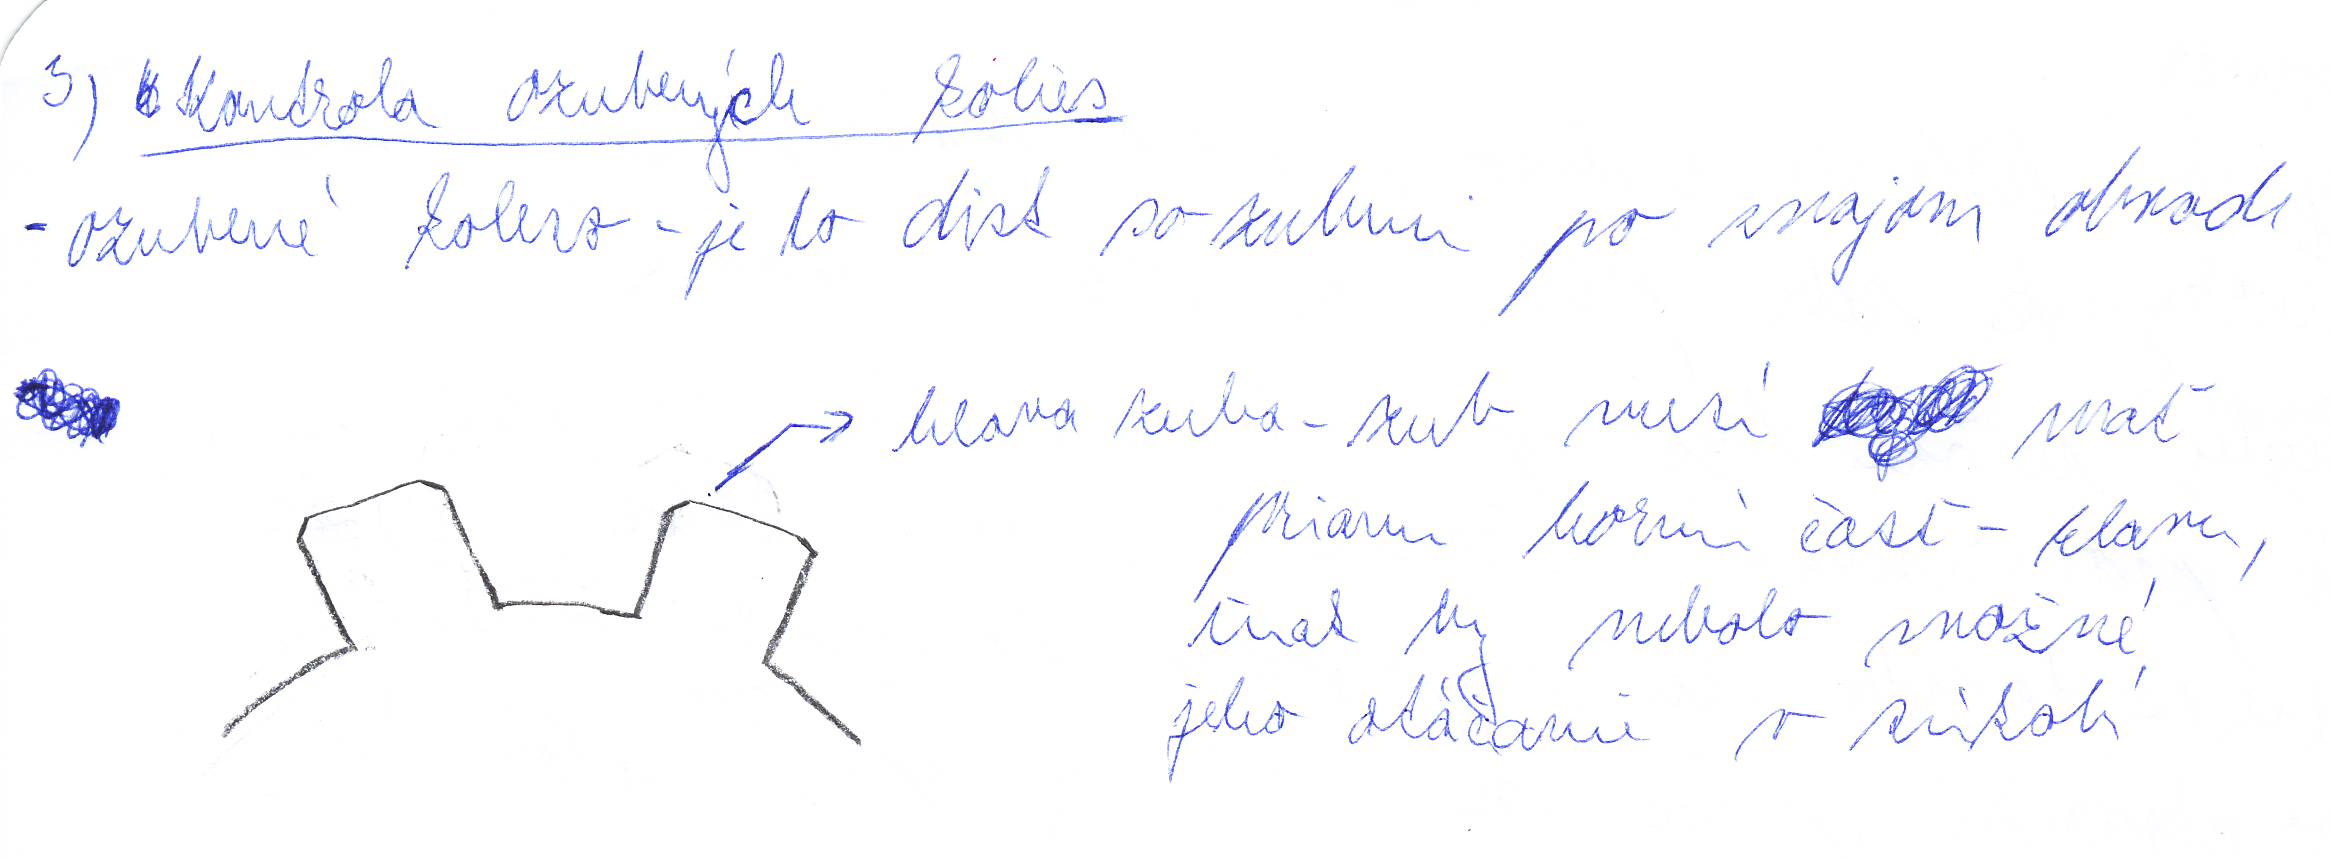 3) Kontrola ozubených kolies
- ozubené koleso - je to disk so zubmi po svojom obvode
hlava zuba - zub musí mať
priamu hornú časť - hlavu,
inak by nebolo možné
jeho otáčanie v súkolí